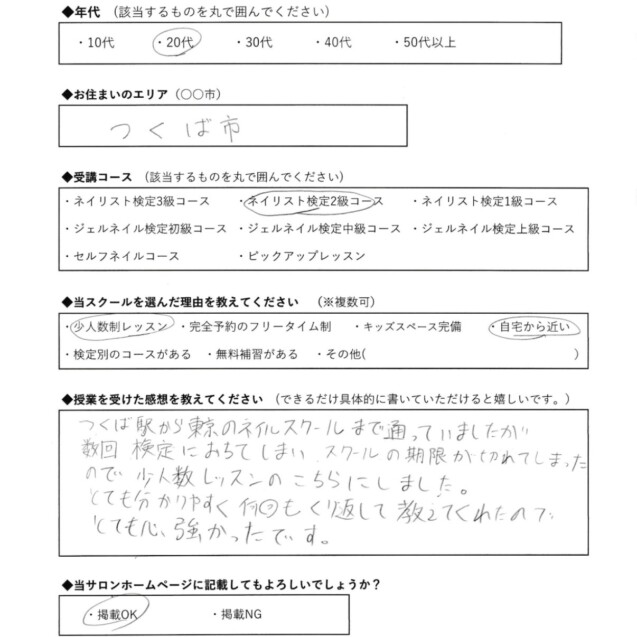 ◆年代 （該当するものを丸で囲んでください）
・10代 ・20代 ・30代 ・40代 ・50代以上
◆お住まいのエリア（○○市）
つくば市
◆受講コース （該当するものを丸で囲んでください）
・ネイリスト検定3級コース ・ネイリスト検定2級コース ・ネイリスト検定1級コース
・ジェルネイル検定初級コース ・ジェルネイル検定中級コース ・ジェルネイル検定上級コース
・セルフネイルコース ・ピックアップレッスン
◆当スクールを選んだ理由を教えてください （※複数可）
・少人数制レッスン ・完全予約のフリータイム制 ・キッズスペース完備 ・自宅から近い
・検定別のコースがある ・無料補習がある ・その他( )
◆授業を受けた感想を教えてください （できるだけ具体的に書いていただけると嬉しいです。）
つくば駅から東京のネイルスクールまで通っていましたが
数回 検定におちてしまい スクールの期限が切れてしまった
ので 少人数レッスンのこちらにしました。
とても分かりやすく何回もくり返して教えてくれたので
とても心強かったです。
◆当サロンホームページに記載してもよろしいでしょうか？
・掲載OK ・掲載NG